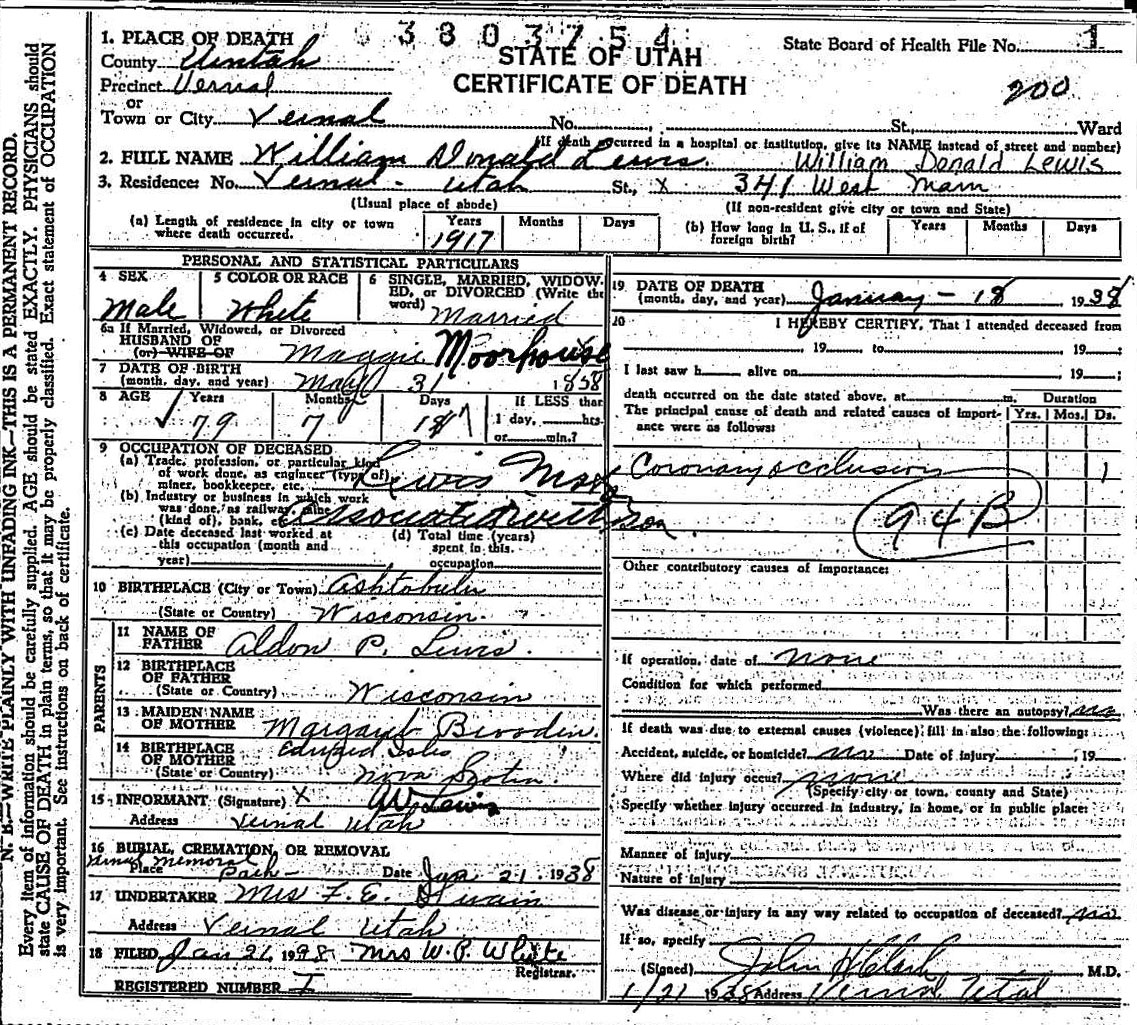 3803754
1. PLACE OF DEATH
County Uintah
Precinct Vernal
or
Town or City Vernal No. St., Ward
STATE OF UTAH
CERTIFICATE OF DEATH
State Board of Health File No. 1
200
(If death occurred in a hospital or institution, give its NAME instead of street and number)
2. FULL NAME William Donald Lewis. William Donald Lewis
3. Residence: No. Vernal - Utah St., X 341 West Main
(Usual place of abode) (If non-resident give city or town and State)
(a) Length of residence in city or town where death occurred. Years 1917 Months Days
(b) How long in U. S., if of foreign birth? Years Months Days
PERSONAL AND STATISTICAL PARTICULARS
4 SEX Male
5 COLOR OR RACE White
6 SINGLE, MARRIED, WIDOW-
ED, or DIVORCED (Write the
word) Married
6a If Married, Widowed, or Divorced
HUSBAND OF
(or) WIFE OF Maggie Moorhouse
7 DATE OF BIRTH
(month, day, and year) May 31 1858
8 AGE Years 79 Months 7 Days
If LESS than
1 day, hrs.
or min.?
9 OCCUPATION OF DECEASED
(a) Trade, profession, or particular kind
of work done, as engineer (type of),
miner, bookkeeper, etc. Lewis
(b) Industry or business in which work
was done, as railway, mine
(kind of), bank, etc. Associated with son.
(c) Date deceased last worked at
this occupation (month and
year)
(d) Total time (years)
spent in this
occupation
10 BIRTHPLACE (City or Town) Ashtobula
(State or Country) Wisconsin.
PARENTS
11 NAME OF
FATHER Aldon P. Lewis.
12 BIRTHPLACE
OF FATHER
(State or Country) Wisconsin
13 MAIDEN NAME
OF MOTHER Margaret
14 BIRTHPLACE
OF MOTHER
(State or Country) Nova Scotia
15 INFORMANT (Signature) X Lewis
Address Vernal Utah
16 BURIAL, CREMATION, OR REMOVAL
Place Vernal Memorial Park - Date Jan 21. 1938
17 UNDERTAKER Mrs F. E.
Address Vernal Utah
18 FILED Jan 21, 1938 Mrs W. P. White
Registrar.
REGISTERED NUMBER I
19 DATE OF DEATH
(month, day, and year) January - 18 1938
20 I HEREBY CERTIFY, That I attended deceased from
19 to 19 ;
I last saw h alive on 19 ;
death occurred on the date stated above, at m. Duration
The principal cause of death and related causes of import-
ance were as follows: Yrs. Mos. Ds.
Coronary occlusion 1
94B
Other contributory causes of importance:
If operation, date of none
Condition for which performed
Was there an autopsy? no
If death was due to external causes (violence) fill in also the following:
Accident, suicide, or homicide? no Date of injury , 19
Where did injury occur? none
(Specify city or town, county and State)
Specify whether injury occurred in industry, in home, or in public place:
Manner of injury
Nature of injury
Was disease or injury in any way related to occupation of deceased? no
If so, specify
(Signed) John M.D.
1/21 1938 Address Vernal, Utah
N. B.—WRITE PLAINLY WITH UNFADING INK—THIS IS A PERMANENT RECORD.
Every item of information should be carefully supplied. AGE should be stated EXACTLY. PHYSICIANS should
state CAUSE OF DEATH in plain terms, so that it may be properly classified. Exact statement of OCCUPATION
is very important. See instructions on back of certificate.